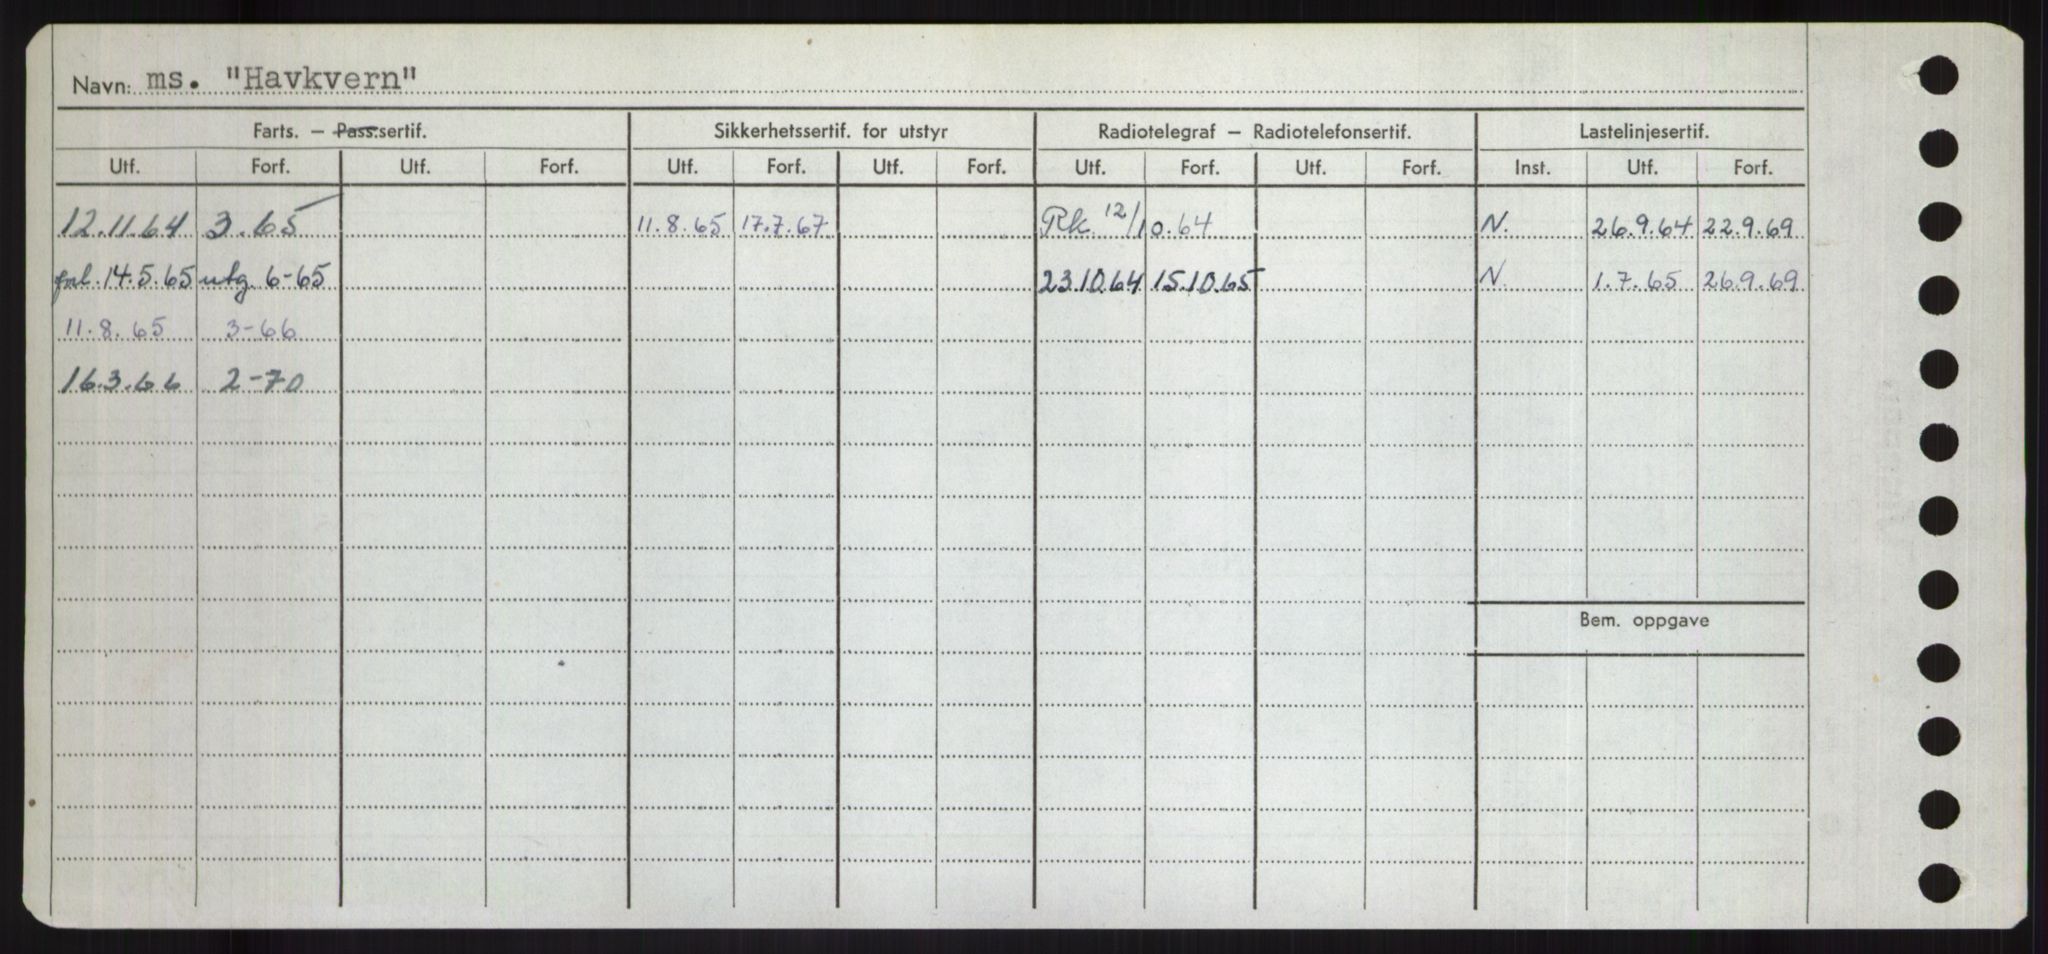 Navn: ms. "Havkvern"
Farts. — Pass.sertif. Sikkerhetssertif. for utstyr Radiotelegraf — Radiotelefonsertif. Lastelinjesertif.
Utf. Forf. Utf. Forf. Utf. Forf. Utf. Forf. Utf. Forf. Utf. Forf. Inst. Utf. Forf.
12.11.64 3.65 11.8.65 17.7.67 Rk. 12/10.64 N. 26.9.64 22.9.69
forl. 14.5.65 utg. 6-65 23.10.64 15.10.65 N. 1.7.65 26.9.69
11.8.65 3-66
16.3.66 2-70
Bem. oppgave